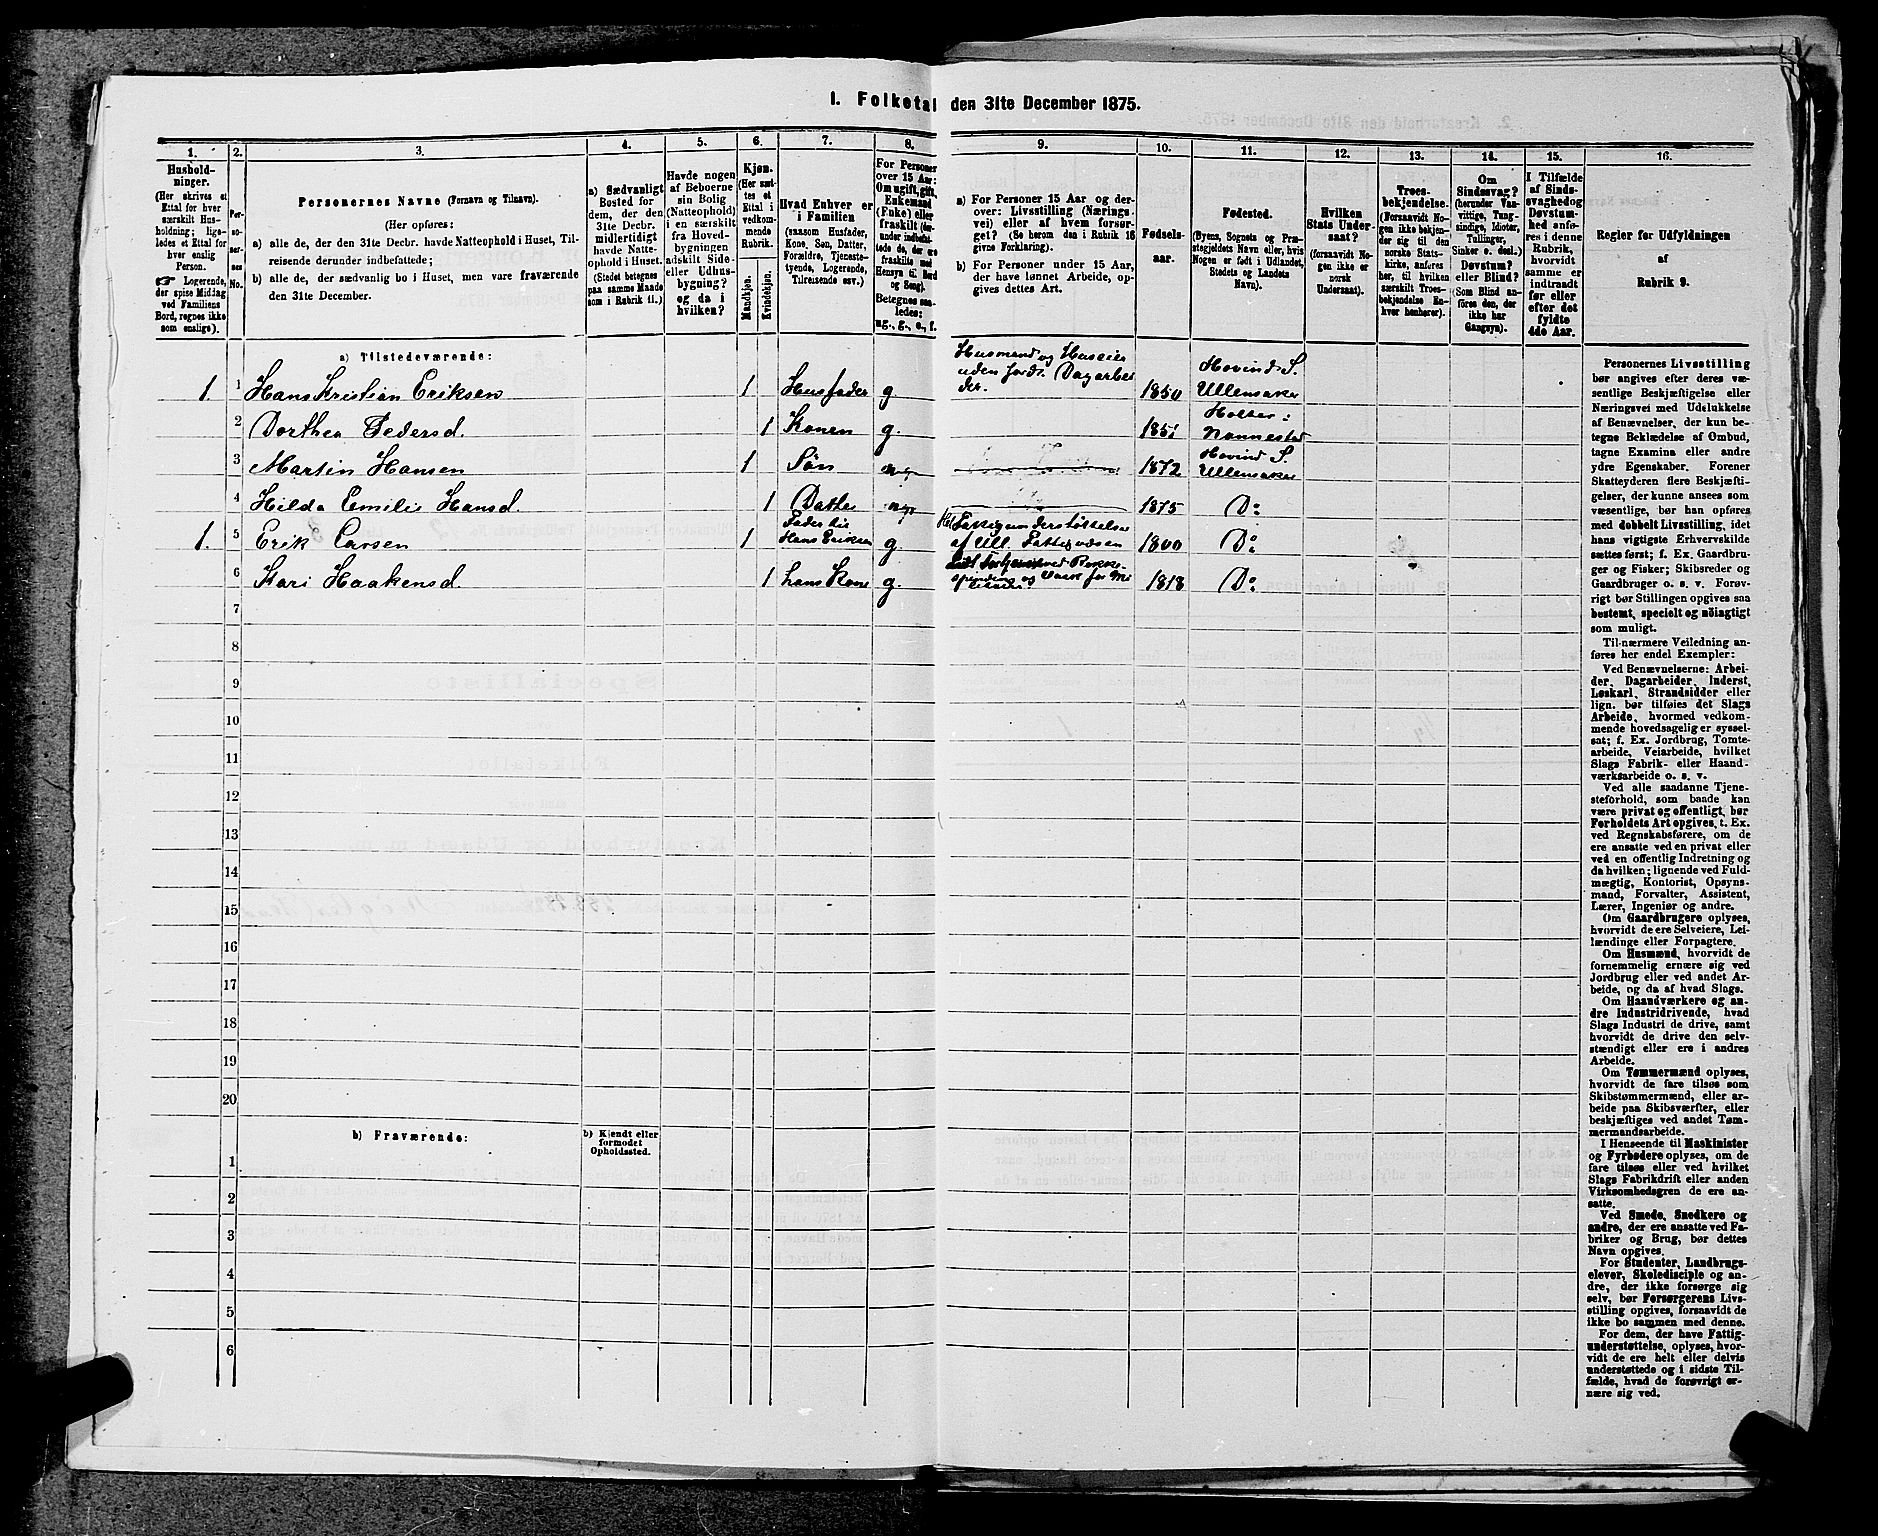 I. Folketal den 31te December 1875.
1.
Husholdninger.
(Her skrives et
Ettal for hver
særskilt Husholdning;
ligeledes et Ettal for
hver enslig
Person.
☞ Logerende,
der spise Middag
ved Familiens
Bord, regnes ikke
som enslige).
2.
Personernes
No.
3.
Personernes Navne (Fornavn og Tilnavn).
(Her opføres:
a) alle de, der den 31te Decbr. havde Natteophold i Huset, Tilreisende derunder indbefattede;
b) alle de, der sædvanlig bo i Huset, men vare fraværende
den 31te December.
4.
a) Sædvanligt
Bosted for
dem, der den
31te Decbr.
midlertidigt
havde Natteophold i Huset.
(Stedet betegnes
paa samme Maade
som i Rubrik 11.)
5.
Havde nogen
af Beboerne
sin Bolig
(Natteophold)
i en særskilt
fra Hovedbygningen
adskilt Side- eller Udhusbygning?
og da i
hvilken?
6.
Kjøn.
(Her sættes et
Ettal i
vedkommende
Rubrik.
Mandkjøn.
Kvindekjøn.
7.
Hvad Enhver er
i Familien
(saasom Husfader,
Kone, Søn, Datter,
Forældre, Tjenestetyende, Logerende,
Tilreisende osv.)
8.
For Personer
over 15 Aar:
Om ugift, gift,
Enkemand
(Enke) eller
fraskilt
Betegnes saaledes:
ug., g., e., f.
9.
a) For Personer 15 Aar og derover: Livsstilling (Næringsvei) eller af hvem forsørget? (Se herom den i Rubrik 16
givne Forklaring).
b) For Personer under 15 Aar,
der have lønnet Arbeide, opgives dettes Art.
10.
Fødselsaar.
11.
Fødested.
(Byens, Sognets og Præstegjeldets Navn eller, hvis
Nogen er født i Udlandet,
Stedets og Landets
Navn).
12.
Hvilken
Stats Undersaat?
(forsaavidt Nogen ikke er
norsk
Undersaat).
13.
Troesbekjendelse.
(Forsaavidt Nogen ikke bekjender sig til den
norske Statskirke, anføres
her, til hvilken
særskilt Troesbekjendelse Enhver henhører).
14.
Om
Sindssvag?
(herunder Vanvittige, Tungsindige, Idioter,
Tullinger,
Sinker o. desl.).
Døvstum?
eller Blind?
(Som Blind anføres den, der
ikke har
Gangsyn).
15.
I Tilfælde
af Sindssvaghed og
Døvstumhed anføres i denne
Rubrik,
hvorvidt
samme er
indtraadt
før eller
efter det
fyldte
4de Aar.
16.
Regler for Udfyldningen
af
Rubrik 9.
a) Tilstedeværende:
1 1 Hans Kristian Eriksen 1 Husfader g. Husmand og Huseier uden Jord. Dagarbeider. 1850 Hovind S. Ullensaker
2 Dorthea Pedersd. 1 Konen g. 1851 Holter: Nannestad
3 Martin Hansen 1 Søn 1872 Hovind S. Ullensaker
4 Hilda Emilie Hansd. 1 Datter 1875 Do
1. 5 Erik Larsen 1 Fader til Hans Eriksen g. Fattigunderstøttelse af Ull. Fattigvæsen 1800 Do
6 Kari Haakensd. 1 hans Kone g. 1818 Do
7
8
9
10
11
12
13
14
15
16
17
18
19
20
b) Fraværende:
b) Kjendt eller
formodet
Opholdssted.
1
2
3
4
5
6
Personernes Livsstilling
bør angives efter deres væsentlige Beskjæftigelse eller
Næringsvei med Udelukkelse
af Benævnelser, der kun betegne Beklædelse af Ombud,
tagne Examina eller andre
ydre Egenskaber. Forener
Skatteyderen flere Beskjæftigelser, der kunne ansees som
væsentlige, bør han opføres
med dobbelt Livsstilling, idet
hans vigtigste Erhvervskilde
sættes først; f. Ex. Gaardbruger og Fisker; Skibsreder og
Gaardbruger o. s. v. Forøvrigt bør Stillingen opgives saa
bestemt, specielt og nøiagtigt
som muligt.
Til nærmere Veiledning anføres her endel Exempler:
Ved Benævnelserne: Arbeider, Dagarbeider, Inderst,
Løskarl, Strandsidder eller
lign. bør tilføies det Slags
Arbeide, hvormed vedkommende hovedsagelig er sysselsat; f. Ex. Jordbrug, Tomtearbeide, Veiarbeide, hvilket
Slags Fabrik- eller Haandværksarbeide o. s. v.
Ved alle saadanne Tjenesteforhold, som baade kan
være privat og offentligt, bør
Forholdets Art opgives, t. Ex.
ved Regnskabsførere, om de
ere ansatte ved en privat eller
ved en offentlig Indretning og
da hvilken; lignende ved Fuldmægtig, Kontorist, Opsynsmand, Forvalter, Assistent,
Lærer, Ingeniør og andre.
Om Gaardbrugere oplyses,
hvorvidt de ere Selveiere, Leilændinge eller Forpagtere.
Om Husmænd, hvorvidt de
fornemmelig ernære sig ved
Jordbrug eller ved andet Arbeide, og da af hvad Slags.
Om Haandværkere og andre Industridrivende, hvad
Slags Industri de drive, samt
hvorvidt de drive den selvstændigt eller ere i andres
Arbeide.
Om Tømmermænd oplyses,
hvorvidt de fare tilsøs som
Skibstømmermænd, eller arbeide paa Skibsværfter, eller
beskjæftiges ved andet Tømmermandsarbeide.
I Henseende til Maskinister
og Fyrbødere oplyses, om de
fare tilsøs eller ved hvilket
Slags Fabrikdrift eller anden
Virksomhedsgren de ere ansatte.
Ved Smede, Snedkere og
andre, der ere ansatte ved Fabriker og Brug, bør dettes
Navn opgives.
For Studenter, Landbrugselever, Skoledisciple og andre, der ikke forsørge sig
selv, bør Forsørgerens Livsstilling opgives, forsaavidt de
ikke bo sammen med denne.
For dem, der have Fattigunderstøttelse, oplyses, hvorvidt de ere helt eller delvis
understøttede og i sidste Tilfælde, hvad de forøvrigt ernære sig ved.